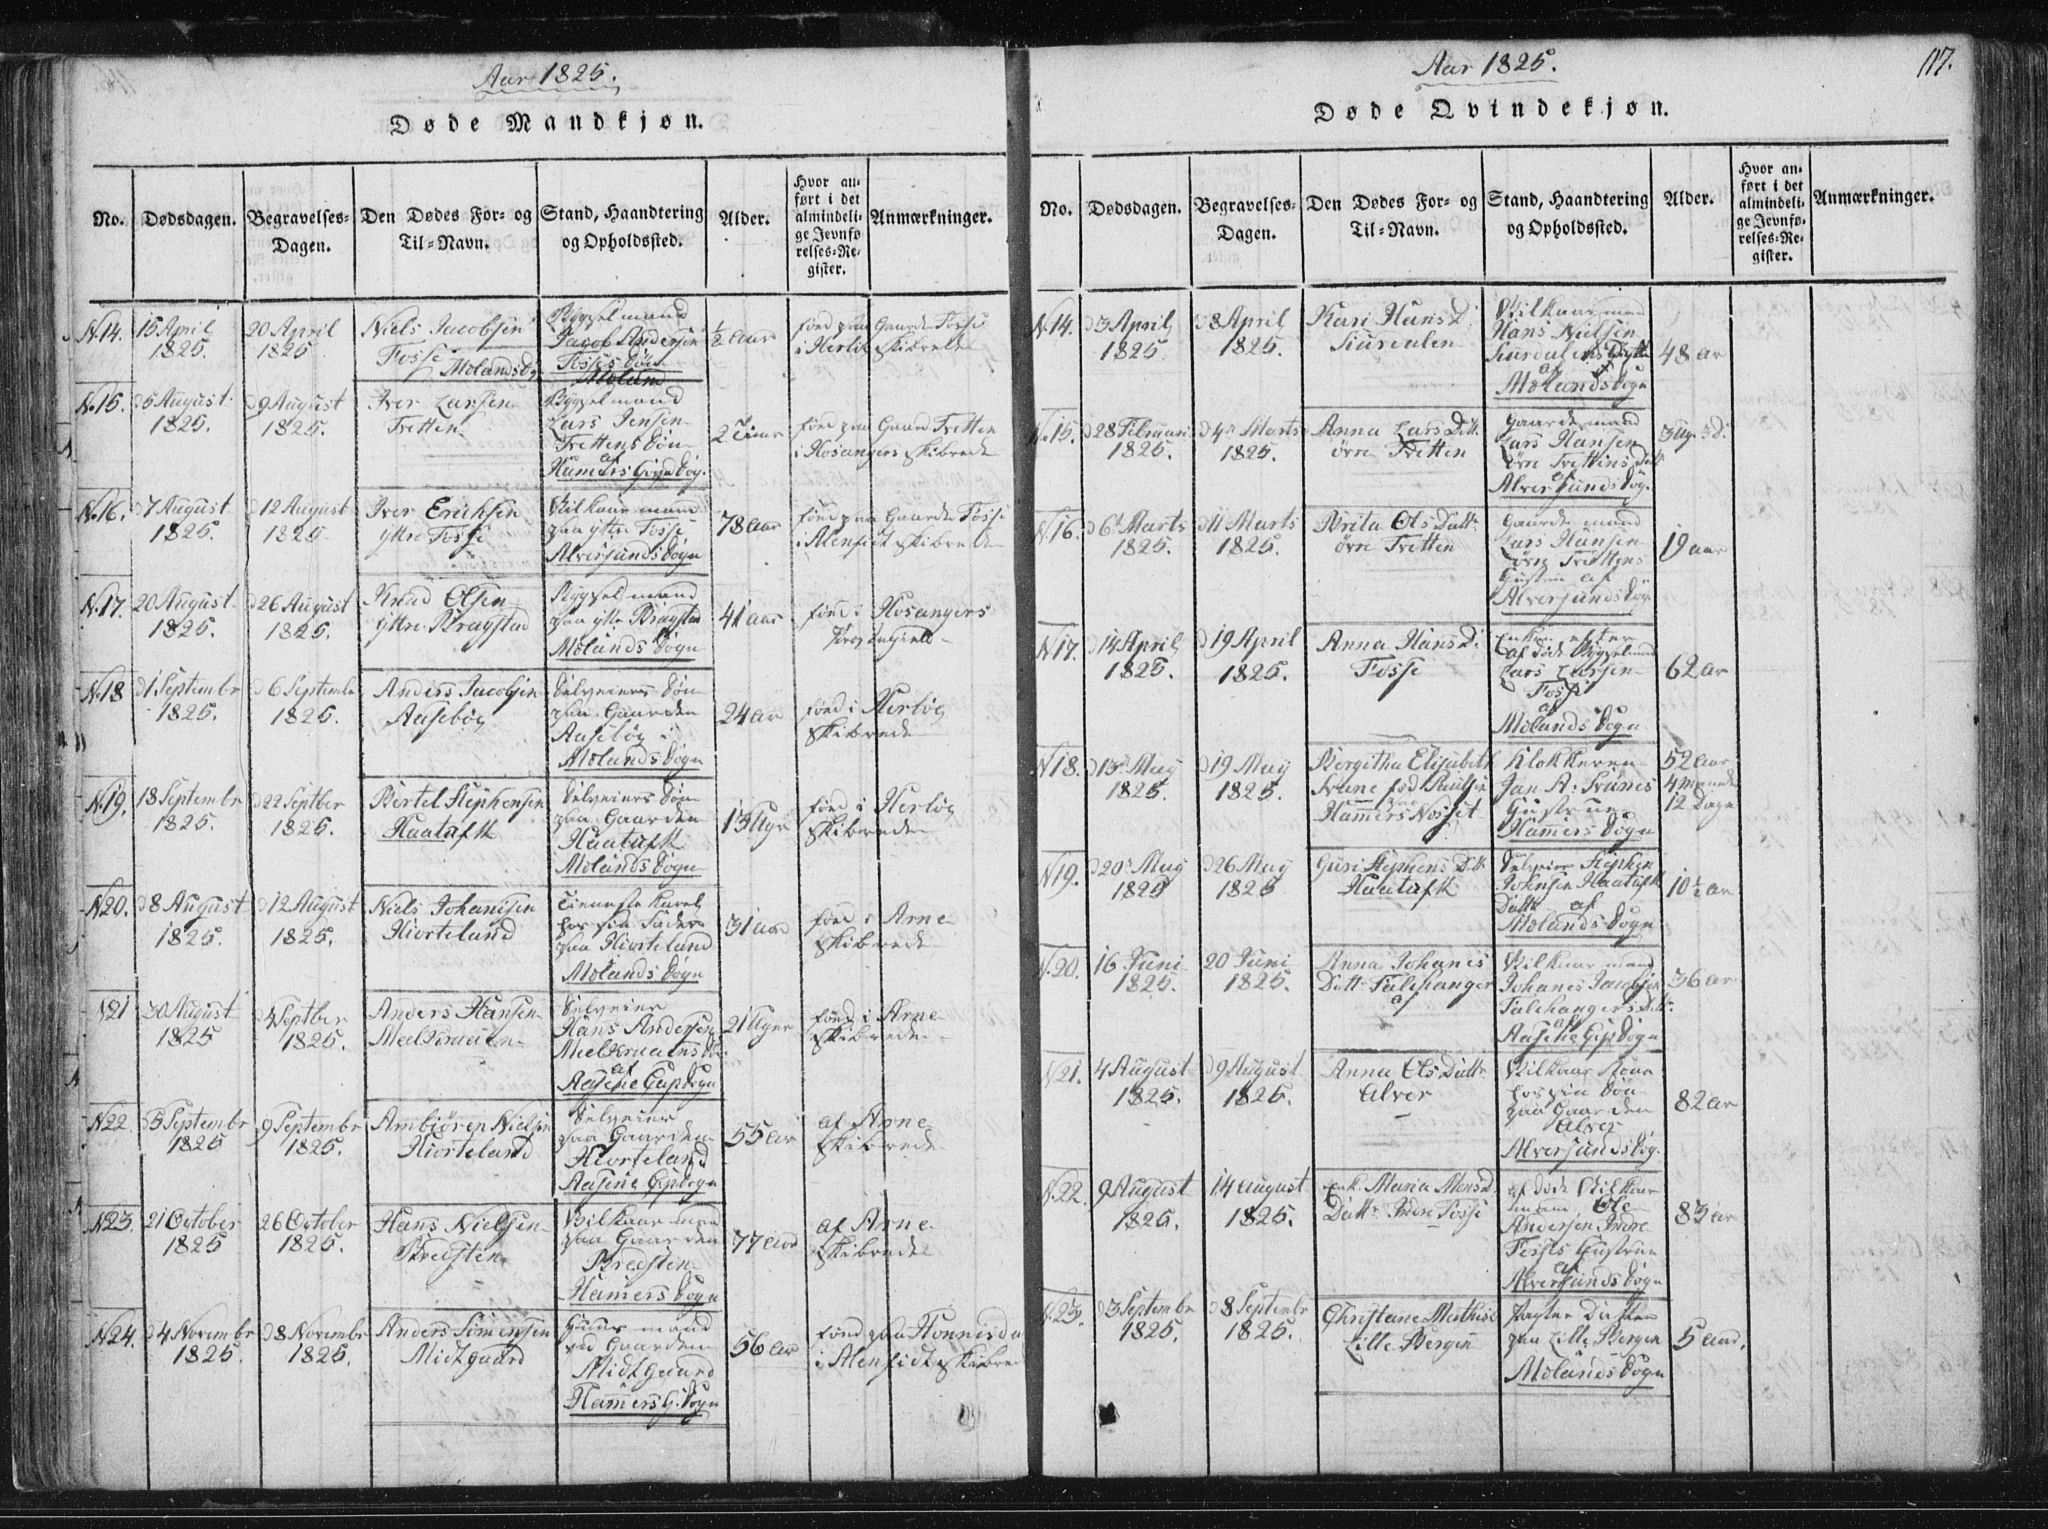 Aar 1825.
Døde Mandkjøn.
No.
Dødsdagen.
Begravelses-
Dagen.
Den Dødes For- og
Til-Navn.
Stand, Haandtering
og Opholdssted.
Alder.
Hvor an-
ført i det
almindeli-
ge Jevnfø-
relses-Re-
gister.
Anmærkninger.
N.14.
15 April
1825.
20 April
1825
Niels Jacobsen
Fosse
Molands
Bygselmand
Jacob Andersen
Fosses Søn
Moland
½ aar
fød paa Gaarden Fosse
i Herlöe Skibrede
No.15.
d 5 August
1825.
d 9 August
1825.
Iver Larsen
Fretten
Bygselmand
Lars Jensen
Frettens Søn
af
Hamers Sogn
fød paa Gaard Fretten
i Hosangers Skibrede
No.16.
d 7 August
1825.
d 12 August
1825
Iver Erichsen
yttre Fosse
Vilkaarmand
paa yttre Fosse
Alversunds Sogn
78 aar
fød paa Gaarden Fosse
i Alenfidt Skibrede
N.17.
20 August
1825.
d 26 August
1825.
Knud Olsen
yttre Bragstad
Bygselmand
paa yttre Bragstad
Molands Sogn
41 aar
fød i Hosangers
N.18
d 1 Septembr
1825.
d 6 Septembr
1825.
Anders Jacobsen
Aasebög
Selveiers Søn
paa Gaarden
Aasebög i
Molands Sogn
24 ar
fød i Herlöe
Skibrede
N.19.
18 Septembr
1825.
d 22 Septber
1825.
Bertel Stephensen
Haataft
Selveiers Søn
paa Gaarden
Haataft
Molands Sogn
13 Uger
fød i Herlöe
Skibrede
N.20.
d 8 August
1825.
d 12 August
1825.
Niels Johanisen
Hiorteland
Tieneste karl
hos sin Fader
paa Hiorteland
Molands Sogn
31 aar
fød i Arne
Skibrede
N21
30 August
1825
d 4 Septber
1825.
Anders Hansen
Meelkraaen
Selveier
Hans Andersen
Meelkraaens Søn
af
21 Uger
fød i Arne
Skibrede
N22.
d 5 Septembr
1825
9 Septembr
1825.
Ambiören Nielsen
Hiorteland
Selveier
paa Gaarden
Hiorteland
55 ar
af Arne
Skibrede
N23.
21 October
1825
26 October
1825.
Hans Nielsen
Bredsten
Vilkaarmand
paa Gaarden
Bredsten
Hamers Sogn
77 aar
af Arne
Skibrede
N24.
d 4 Novembr
1825.
d 8 Novembr
1825.
Anders Simensen
Midtgaard
Huusmand
ved Gaarden
Midtgaard
Hamers Sogn
56 ar
fød paa
i Alenfidt Skibrede
Aar 1825.
117.
Døde Qvindekjøn.
No.
Dødsdagen.
Begravelses-
Dagen.
Den Dødes For- og
Til-Navn.
Stand, Haandtering
og Opholdssted.
Alder.
Hvor an-
ført i det
almindeli-
ge Jevnfø-
relses-Re-
gister.
Anmærkninger.
N.14.
d 3 April
1825.
d 8 April
1825.
Kari Hans D.
Siurdalen
Vilkaarmand
Hans Nielsen
Siurdalens Dotter
af
Molands Sogn
48 ar
No.15.
d 28 Februari
1825.
d 4 Marts
1825.
Anna Lars Datt.
övre Fretten
Gaardmand
Lars Hansen
övre Frettens Datt
af
Alversunds Sogn
N.16.
d 6 Marts
1825.
d 11 Marts
1825.
Brita Ols Datt
övre Fretten
Gaardmand
Lars Hansen
övre Frettens
Hustru af
Alversunds Sogn
19 aar
N.17.
d 14 April
1825.
d 19 April
1825.
Anna Hans D.
Fosse
Enke efter
af döde Bygselmand
Lars Larsen
Fosse
af
Molands Sogn
62 ar
N.18.
d 13 May
1825.
d 19 May
1825.
Bergitha Elisabeth
Irene fød
Hamers
Klokkeren
Jan A:
Hustrue
Hamers Sogn
52 aar
4 maande
12 Dage
N.19.
d 20 May
1825
d 26 May
1825
Guri Stephens Datt.
Haataft
Selveier Stephen
Johnsen Haataft
Datt. af
Molands Sogn
10½ ar
N.20.
16 Juni
1825.
20 Juni
1825.
Anna Johanes
Datt. Talehanger
af
Vilkaarmand
Johanes Jacobsen
Talehangers Datt.
36 ar
N.21.
4 August
1825.
d 9 August
1825.
Anna Ols Datt.
Alver
Vilkaar Kone
hos sin Søn
paa Gaarden
Alver
Alversunds Sog.
82 ar
N.22.
9 August
1825.
14 august
1825.
Enk. Maria Mons
Datt. Indre Fosse
af döde Vilkaar
Ole
Andersen Indre
Fosses Hustrue
af
Alversunds Sogn
83 ar
N.23.
d 3 Septembr
1825.
d 8 Septembr
1825.
Christiane Mathis
Lille Bergen
Datter
paa Lille Bergen
Molands Sogn
5 aar.